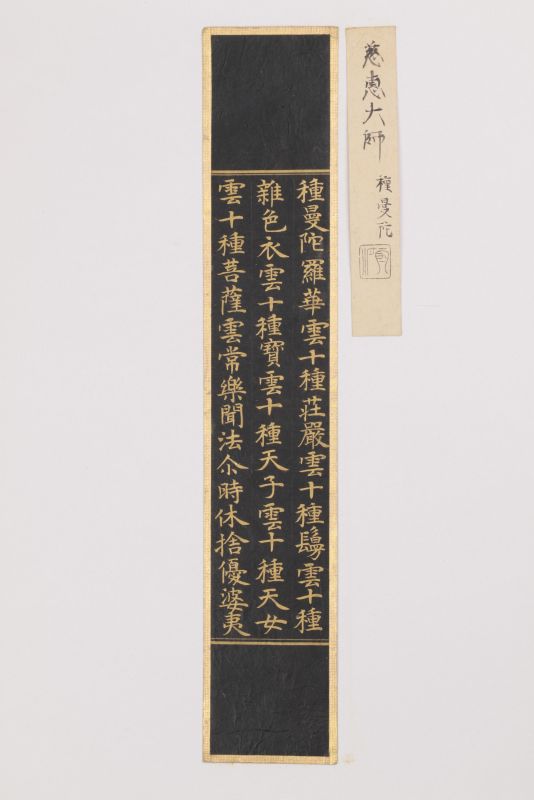 慈恵大師 種曼陀
種曼陀羅華雲十種荘嚴雲十種鬘雲十種
雜色衣雲十種寶雲十種天子雲十種天女
雲十種菩薩雲常樂聞法尒時休捨優婆夷